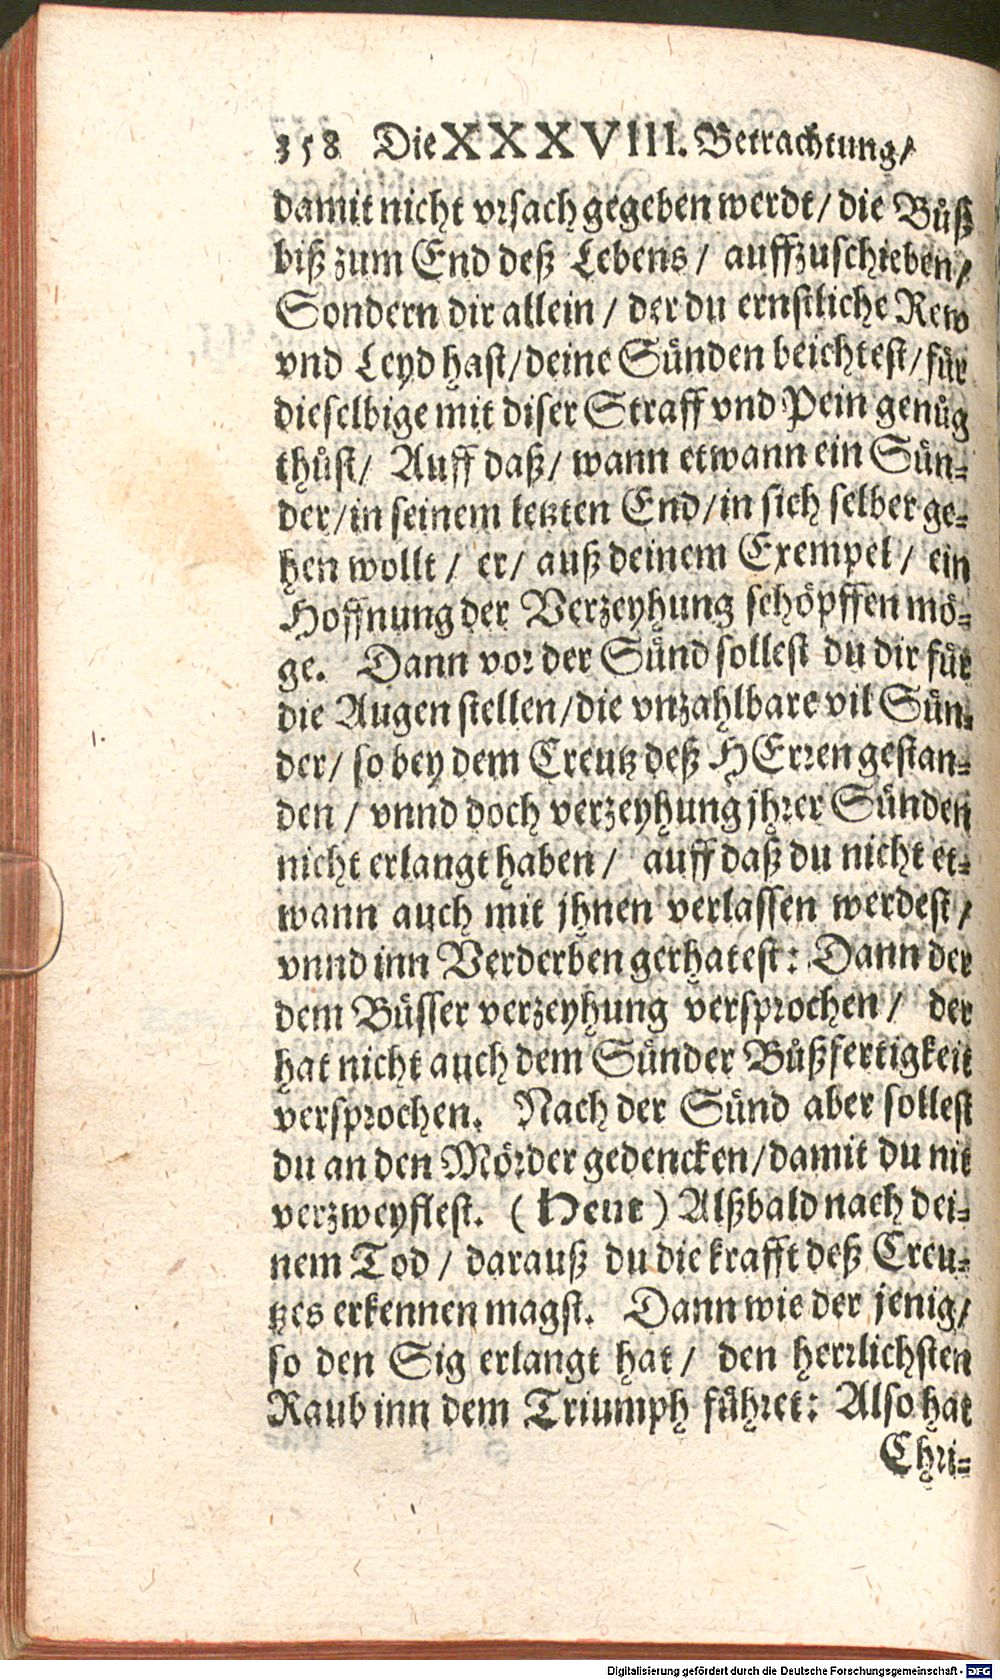 358 Die XXXVIII. Betrachtung/
damit nicht vrsach gegeben werdt/ die Bůß
biß zum End deß Lebens/ auffzuschieben/
Sondern dir allein/ der du ernstliche Rew
vnd Leyd hast/ deine Sünden beichtest/ für
dieselbige mit diser Straff vnd Pein genůg
thůst/ Auff daß/ wann etwann ein Sün-
der/ in seinem letzten End/ in sich selber ge-
hen wollt/ er/ auß deinem Exempel/ ein
Hoffnung der Verzeyhung schöpffen mö-
ge. Dann vor der Sünd sollest du dir für
die Augen stellen/ die vnzahlbare vil Sün-
der/ so bey dem Creutz deß HErren gestan-
den/ vnnd doch verzeyhung jhrer Sünden
nicht erlangt haben/ auff daß du nicht et-
wann auch mit jhnen verlassen werdest/
vnnd inn Verderben gerhatest: Dann der
dem Büsser verzeyhung versprochen/ der
hat nicht auch dem Sünder Bůßfertigkeit
versprochen. Nach der Sünd aber sollest
du an den Mörder gedencken/ damit du nit
verzweyflest. (Heut) Alßbald nach dei-
nem Tod/ darauß du die krafft deß Creu-
tzes erkennen magst. Dann wie der jenig/
so den Sig erlangt hat/ den herrlichsten
Raub inn dem Triumph führet: Also hat
Chri-
Digitalisierung gefördert durch die Deutsche Forschungsgemeinschaft - DFG